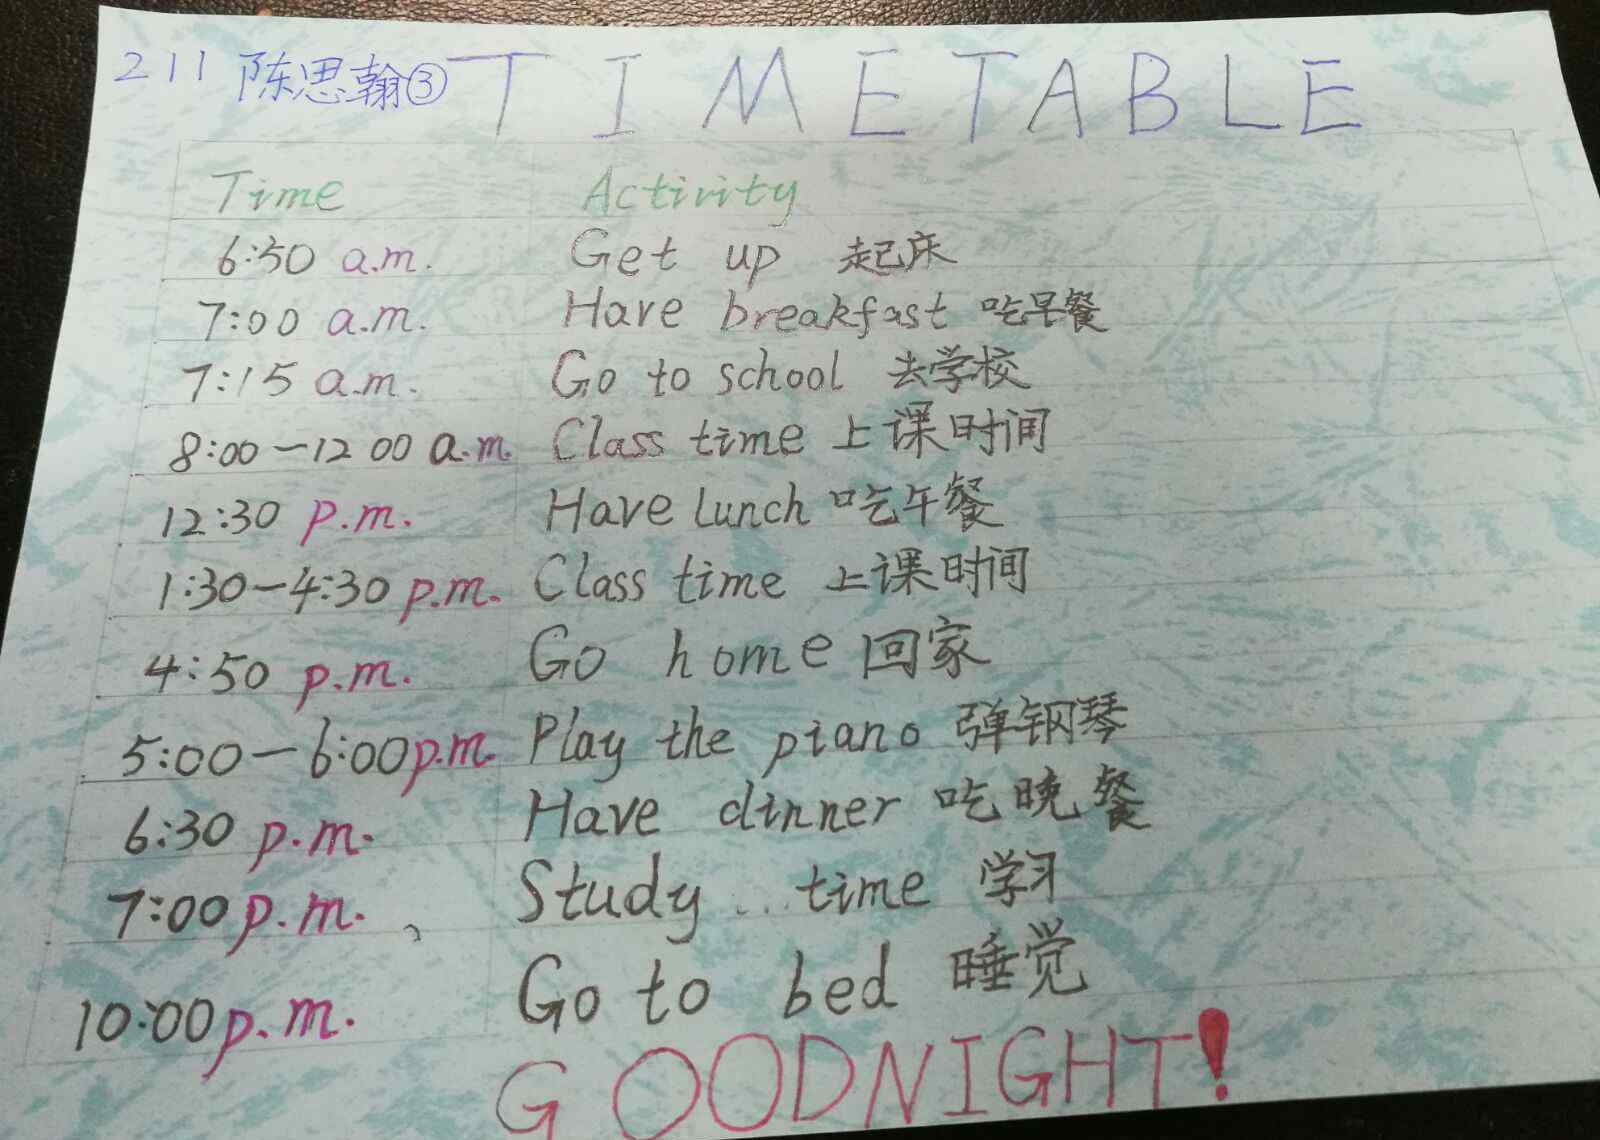 211 陈思翰③ TIMETABLE
Time Activity
6:50 a.m. Get up 起床
7:00 a.m. Have breakfast 吃早餐
7:15 a.m. Go to school 去学校
8:00-12 00 a.m. Class time 上课时间
12:30 p.m. Have lunch 吃午餐
1:30-4:30 p.m. Class time 上课时间
4:50 p.m. Go home 回家
5:00-6:00p.m. Play the piano 弹钢琴
6:30 p.m. Have dinner 吃晚餐
7:00p.m. Study...time 学习
10:00p.m. Go to bed 睡觉
GOODNIGHT!